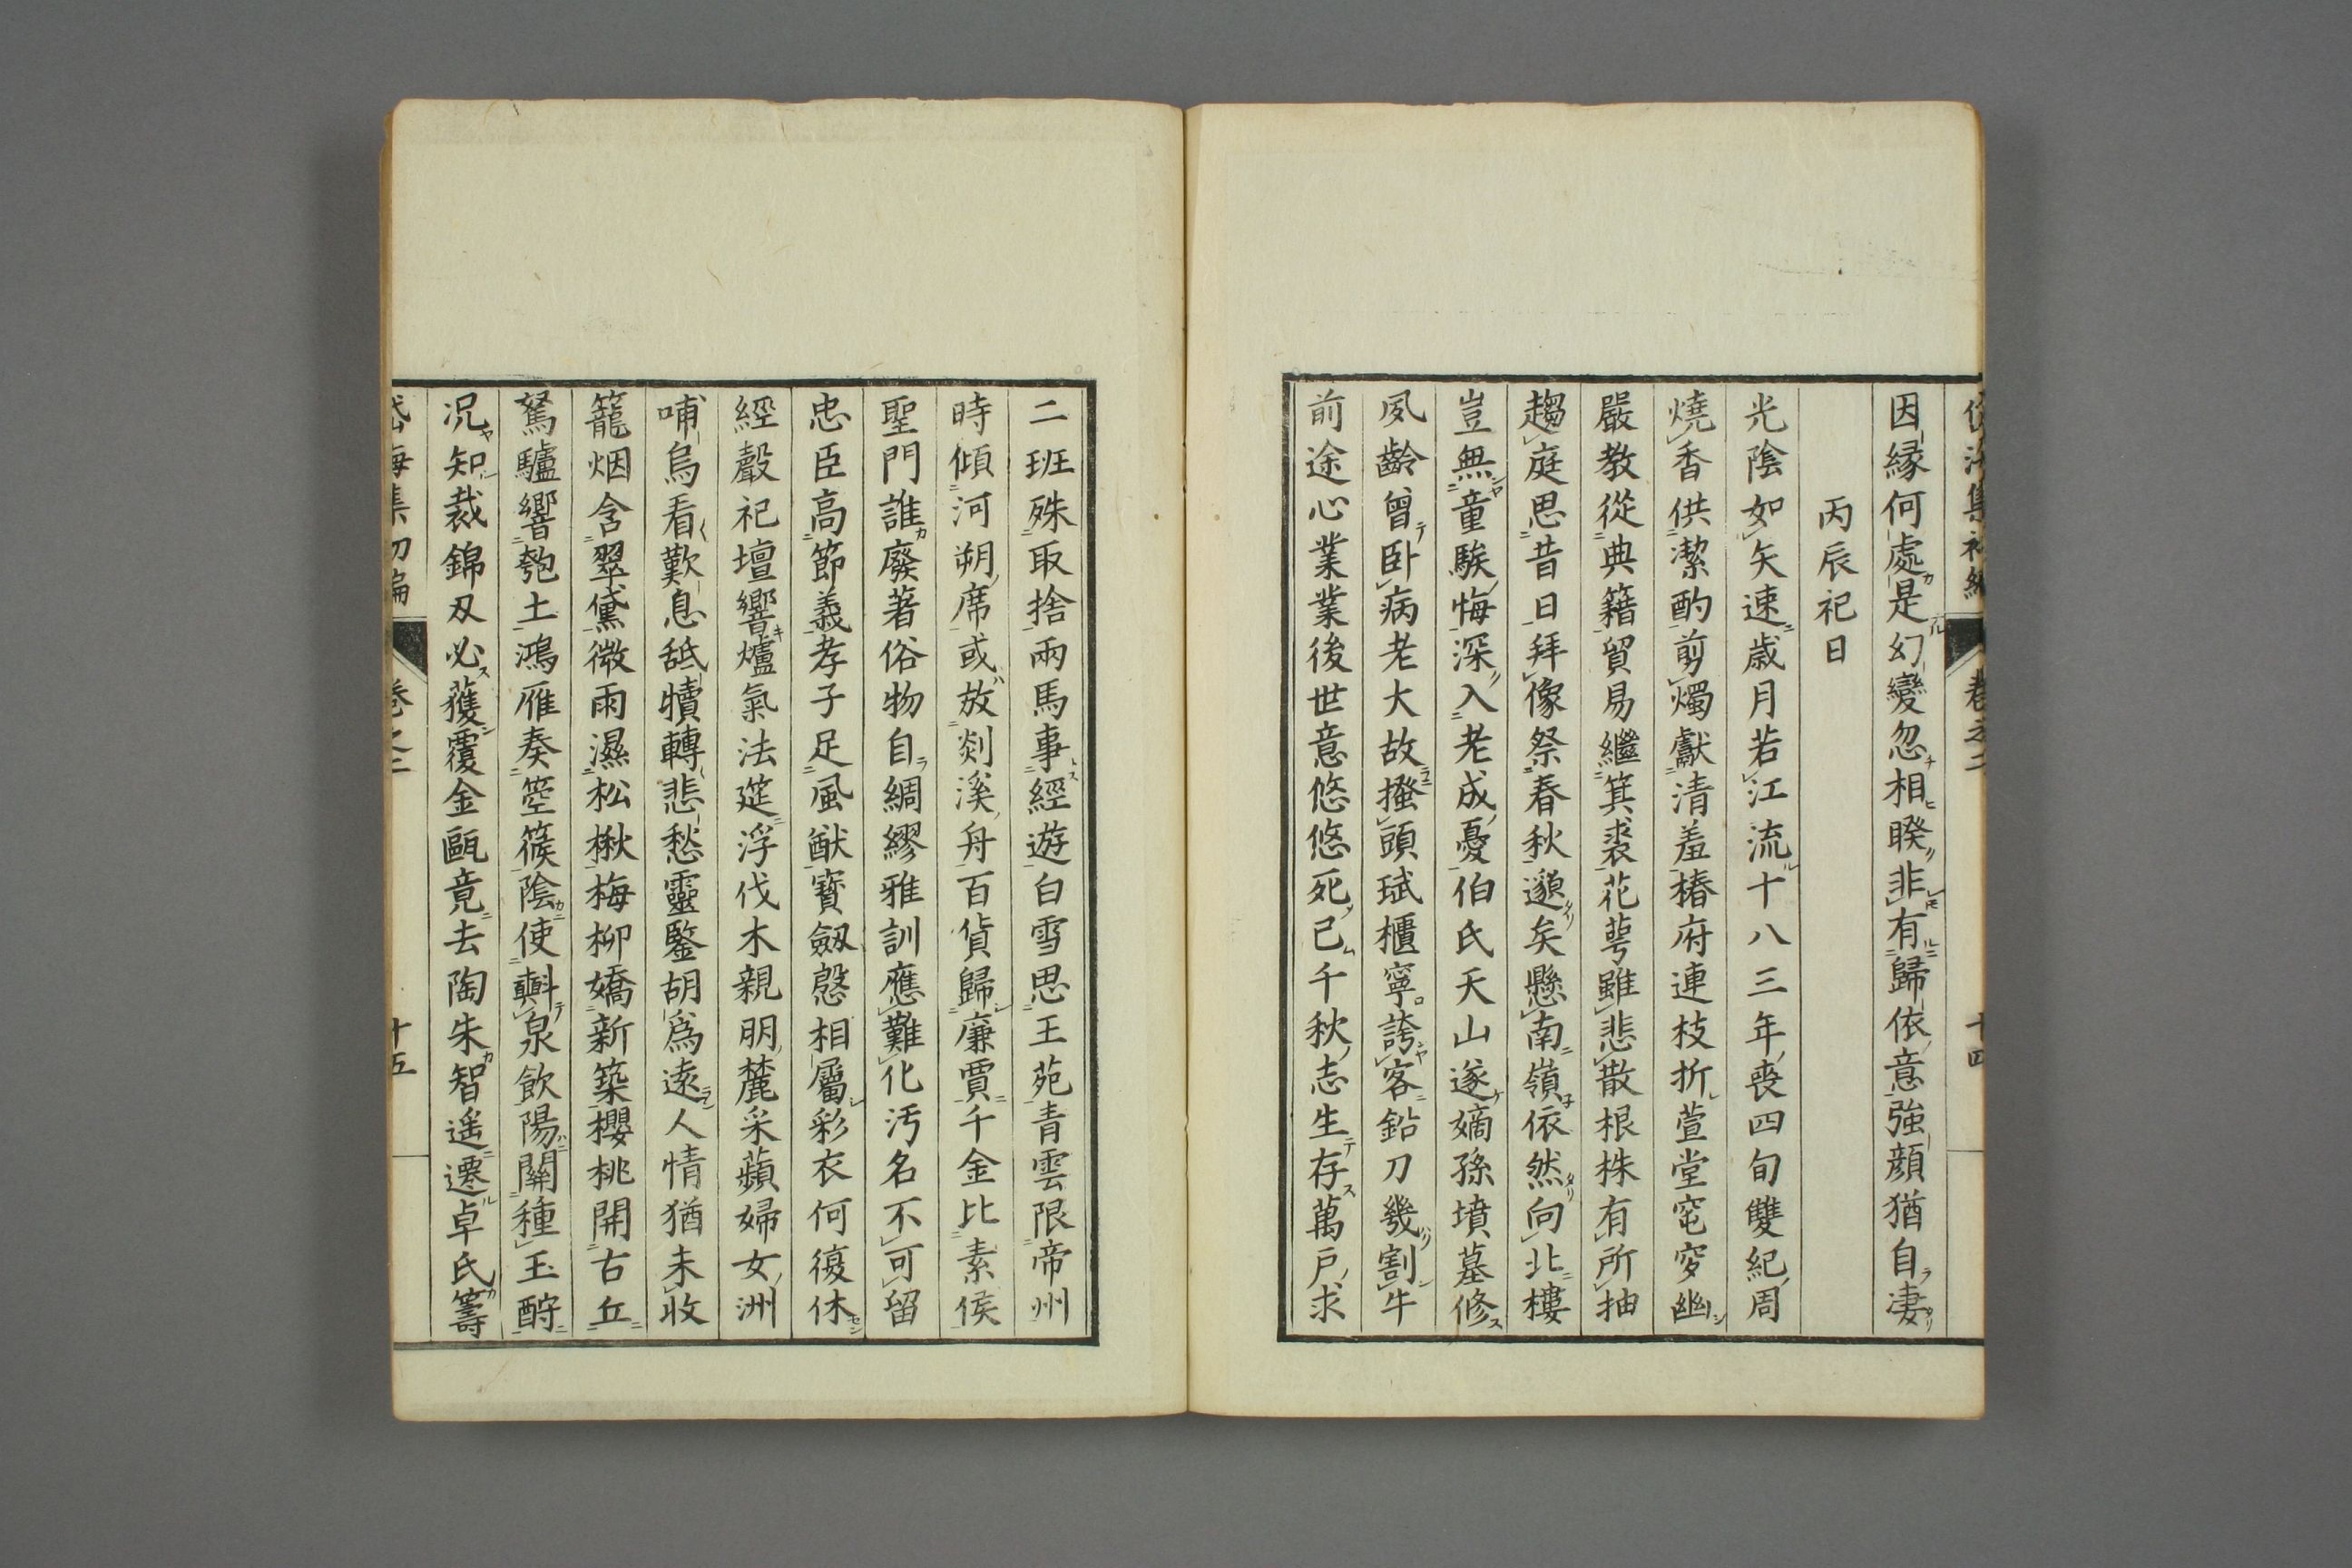 因縁何處是幻變忽相睽非有歸依意強顔猶自凄
丙辰祀日
光陰如矢速歳月若江流十八三年喪四旬雙紀周
燒香供潔酌剪燭獻清羞椿府連枝折萱堂窀穸幽
嚴教從典籍貿易繼箕裘花萼雖悲散根株有所抽
趨庭思昔日拜像祭春秋邈矣懸南嶺依然向北樓
豈無童騃悔深入老成憂伯氏夭山遂嫡孫墳墓修
夙齡曾卧病老大故搔頭珷櫃寧誇客鉛刀幾割牛
前途心業業後世意悠悠死已千秋志生存萬戸求
二班殊取捨兩馬事經遊白雪思王苑青雲限帝州
時傾河朔席或放剡溪舟百貨歸廉賈千金比素侯
聖門誰廢著俗物自綢繆雅訓應難化汚名不可留
忠臣高節義孝子足風猷寳劔慇相屬彩衣何復休
經聲祀壇響爐氣法筵浮伐木親朋麓采蘋婦女洲
哺烏看歎息舐犢轉悲愁靈鑒胡爲遠人情猶未收
籠烟含翠黛微雨濕松楸梅柳嬌新築櫻桃開古丘
駑驢響匏土鴻雁奏箜篌陰使㪺泉飲陽關種玉酧
况知裁錦刄必獲覆金甌竟去陶朱智遥遷卓氏籌
卷之二
十五